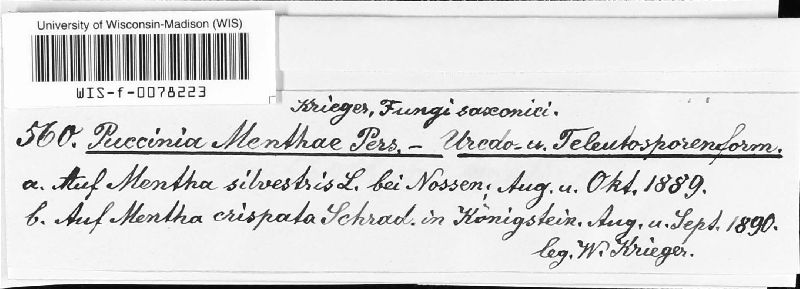 University of Wisconsin-Madison (WIS)
WIS-f-0078223
Krieger, Fungi saxonici.
560. Puccinia Menthae Pers. – Uredo- u. Teleutosporenform.
a. Auf Mentha silvestris L. bei Nossen, Aug. u. Okt. 1889.
b. Auf Mentha crispata Schrad. in Königstein. Aug. u. Sept. 1890.
leg. W. Krieger.